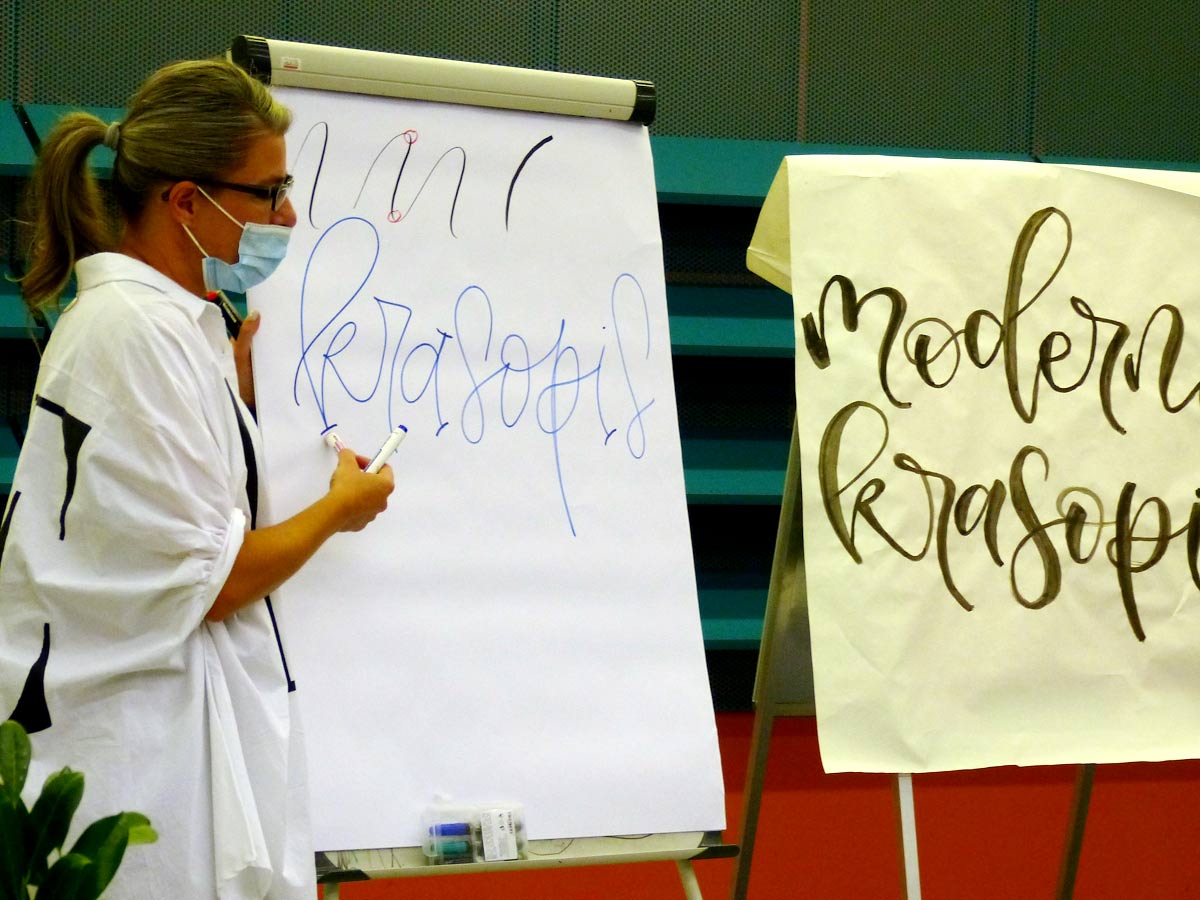 krasopis
modern
krasopi